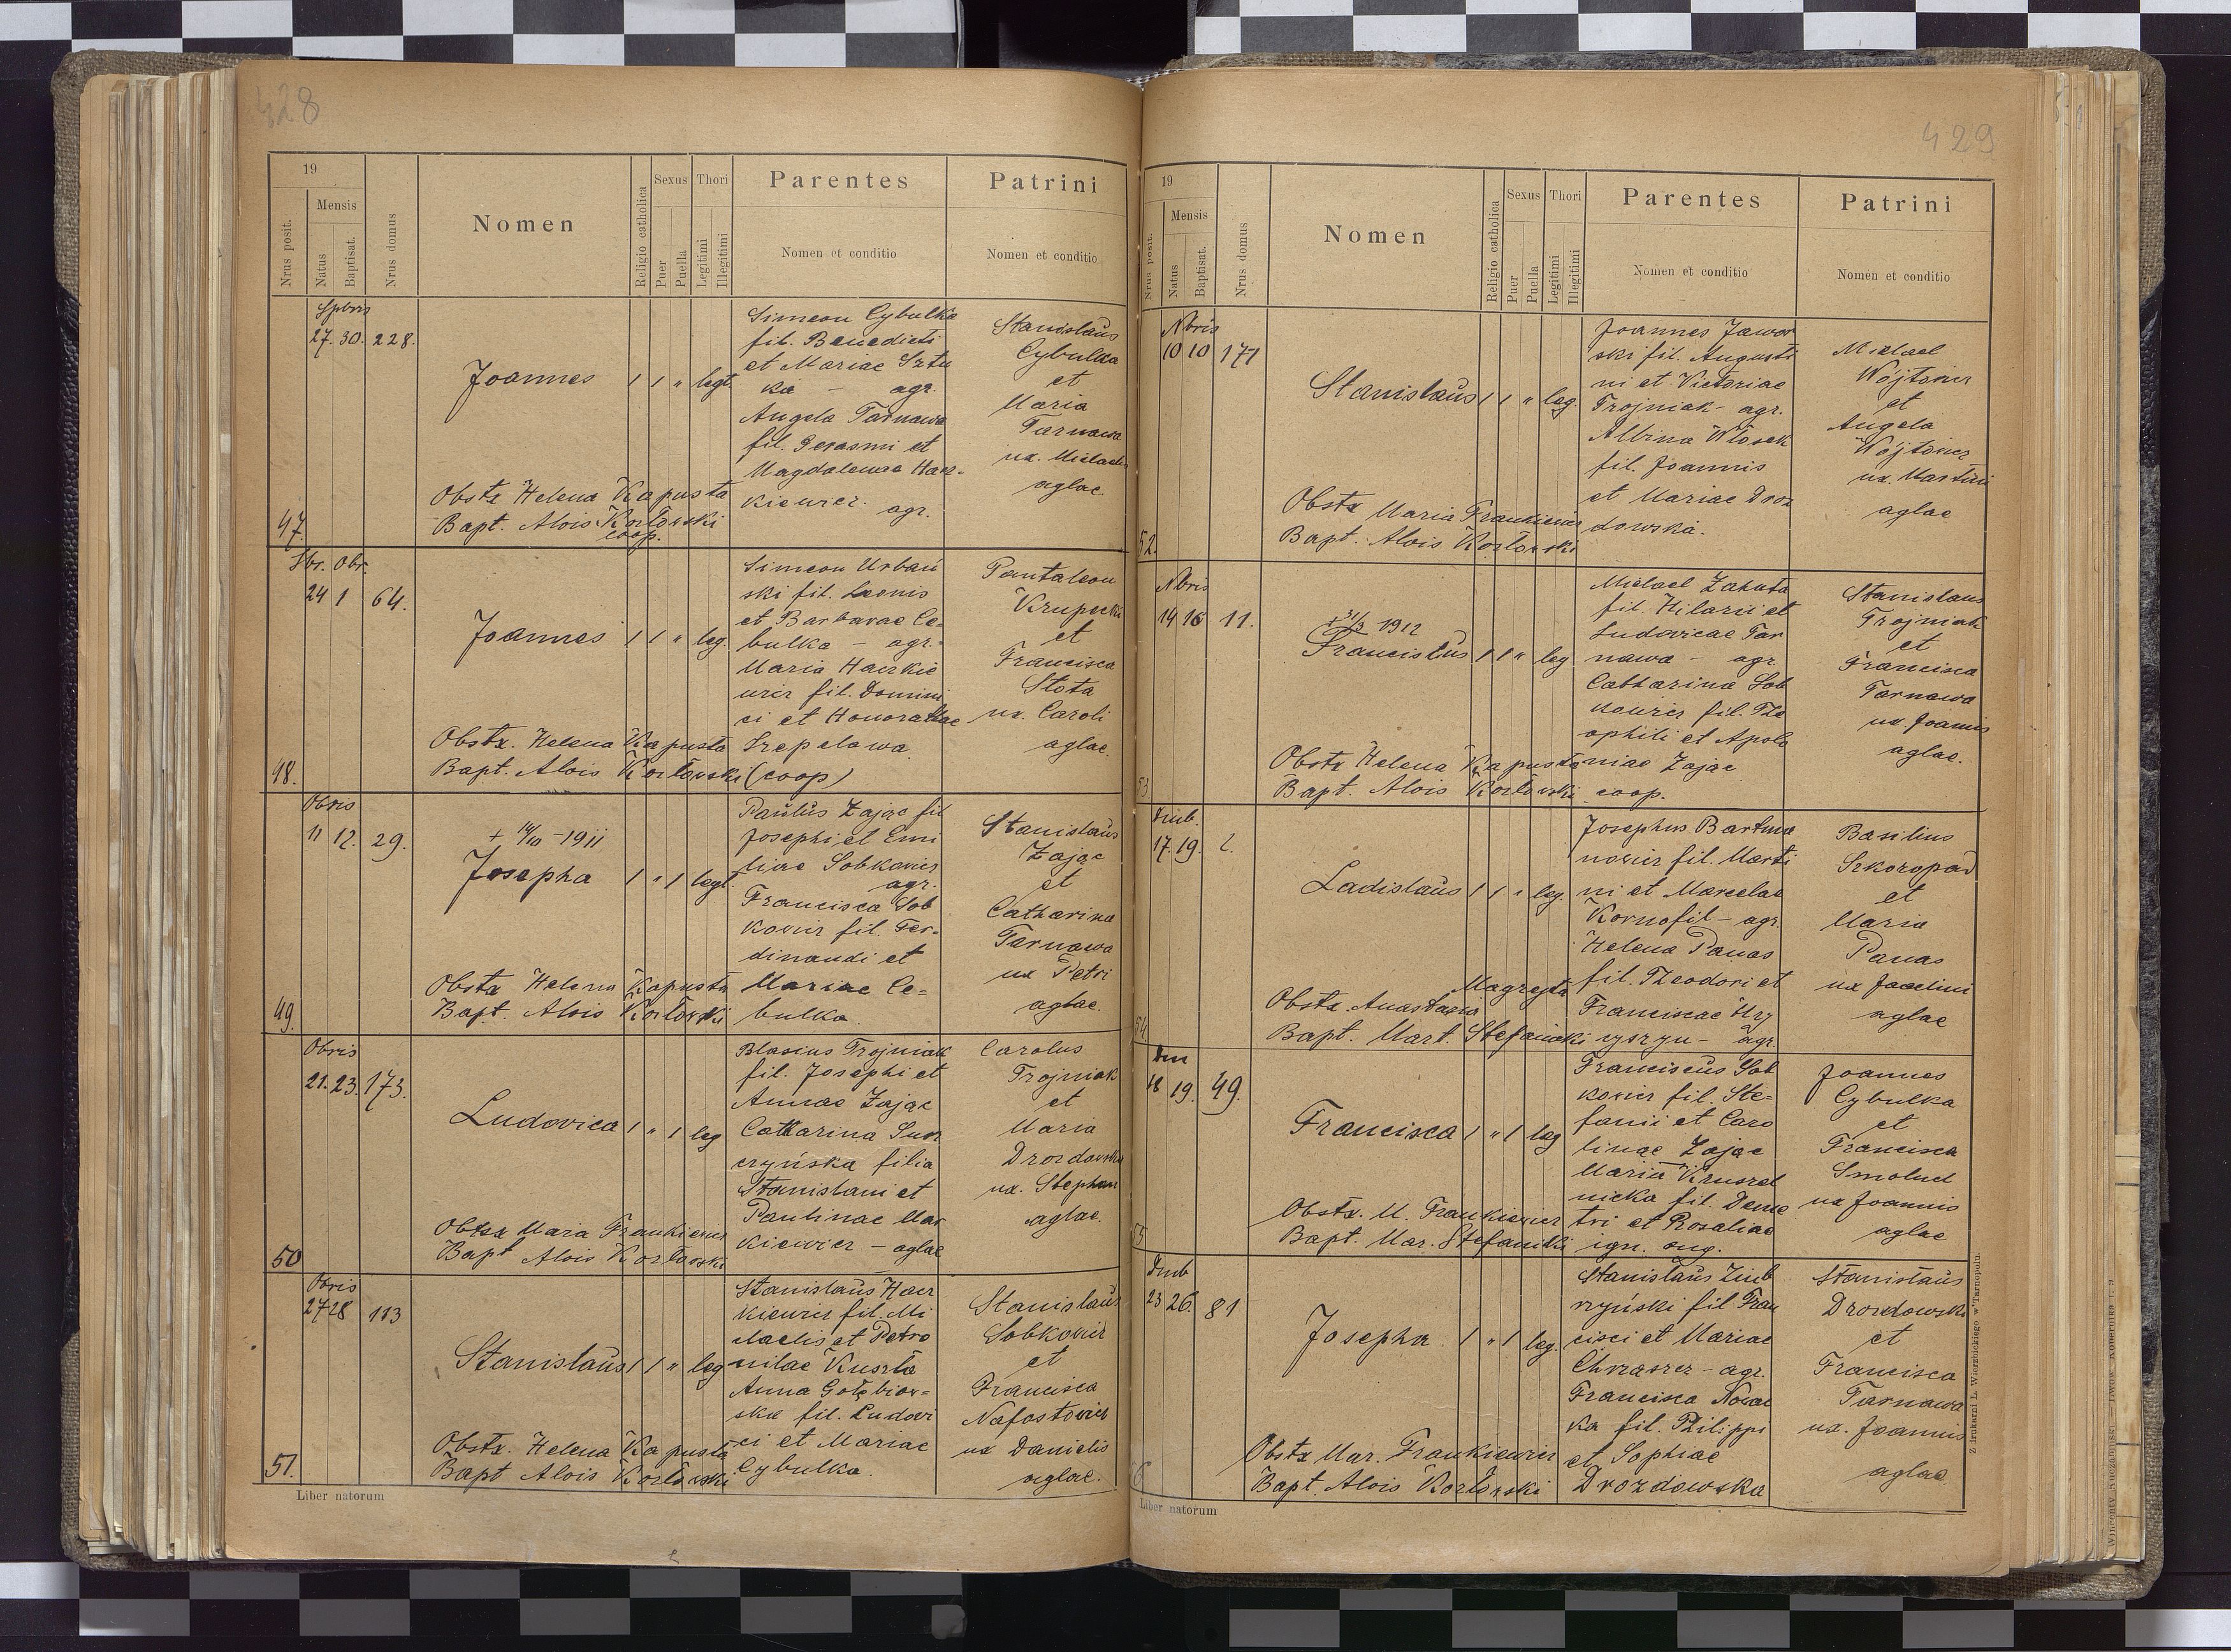 428
19
Nrus posit.
Mensis
Natus
Baptisat.
Nrus domus
Nomen
Religio catholica
Sexus
Puer
Puella
Thori
Legitimi
Illegitimi
Parentes
Nomen et conditio
Patrini
Nomen et conditio
27. 30. 228.
Joannes 1 1 " legt.
Simeon Cybulka
fil. Benedicti
et Mariae Sztu
ka - agr.
Angela Tarnawa
fil. Gerasmi et
Magdalenae Hacz-
kiewicz. agr.
Stanislaus
Cybulka
et
Maria
Tarnawa
ux. Michaelis
aglae.
Obstx Helena Kapusta
Bapt. Alois Kozłowski
coop.
47.
7br. 8br.
24 1 64.
Joannes 1 1 " leg.
Simeon Urbań
ski fil. Leonis
et Barbarae Ce-
bulka - agr.
Maria Haczkie
wicz fil. Domini
ci et Honorathae
Szepelawa
Pantaleon
Krupecki
et
Francisca
Słota
ux. Caroli
aglae.
Obstx. Helena Kapusta
Bapt. Alois Kozłowski (coop)
48.
8bris
11 12. 29.
+ 14/10 - 1911
Josepha 1 " 1 legt.
Paulus Zając fil
Josephi et Emi
liae Sobkowicz
agr.
Francisca Sob
kowicz fil. Fer-
dinandi et
Mariae Ce-
bulka.
Stanislaus
Zając
et
Catharina
Tarnawa
ux Petri
aglae.
Obstx Helena Kapusta
Bapt. Alois Kozłowski
49.
8bris
21. 23. 173.
Ludovica 1 " 1 leg
Blasius Trojniak
fil. Josephi et
Annae Zając
Catharina Surz
czyńska filia
Stanislaui et
Paulinae Mar
kiewicz - aglae
Carolus
Trojniak
et
Maria
Drozdowska
ux. Stephan
aglae.
Obstx Maria Frankiewicz
Bapt Alois Kozłowski
50
8bris
27 28 113
Stanislaus 1 1 " leg
Stanislaus Hacz
kiewicz fil. Mi
chaelis et Petro
nilae Kuszta
Anna Gołębiow-
ska fil. Ludovi
ci et Mariae
Cybulka.
Stanislaus
Sobkowicz
et
Francisca
Nafostowicz
ux Danielis
aglae.
Obstx. Helena Kapusta
Bapt Alois Kozłowski
51.
Liber natorum
429
19
Nrus posit.
Mensis
Natus
Baptisat.
Nrus domus
Nomen
Religio catholica
Sexus
Puer
Puella
Thori
Legitimi
Illegitimi
Parentes
Nomen et conditio
Patrini
Nomen et conditio
Nbris
10 10 171
Stanislaus 1 1 " leg.
Joannes Jawor
ski fil. Augusti
ni et Victoriae
Trojniak - agr.
Albina Włosek
fil. Joannis
et Mariae Droz
dowska.
Michael
Wójtowicz
et
Angela
Wójtowicz
ux. Martini
aglae
Obstx Maria Frankiewicz
Bapt. Alois Kozłowski
52.
Nbris
14 16 11.
+ 31/3 1912
Franciscus 1 1 " leg
Michael Zahuta
fil. Hilarii et
Ludovicae Tar
nawa - agr.
Catharina Sob
kowicz fil. The
ophili et Apolo
niae Zając
Stanislaus
Trojniak
et
Francisca
Tarnawa
ux. Joannis
aglae.
Obstx Helena Kapusta
Bapt. Alois Kozłowski coop.
53.
17. 19. 2.
Ladislaus 1 1 " leg.
Josephus Bartma
nowicz fil. Marti
ni et Marcelae
Kornofil - agr.
Helena Panas
fil. Theodori et
Franciscae Hry
cyszyn - agr.
Basilius
Szkoropad
et
Maria
Panas
ux
aglae
Obstx. Anastasia
Bapt. Mart. Stefanicki
54.
18 19. 49.
Francisca 1 " 1 leg
Franciscus Sob
kowicz fil. Ste-
fanii et Caro
linae Zając
Maria Kruszel
nicka fil. Deme
tri et Rosaliae
ign. cog.
Joannes
Cybulka
et
Francisca
Smoluch
ux Joannis
aglae
Obstx. M. Frankiewicz
Bapt. Mar. Stefanicki
55
23 26. 81
Josepha 1 " 1 leg.
Stanislaus Ziub
rzyński fil Fran
cisci et Mariae
Chrząszcz - agr.
Francisca Nowac
ka fil. Philippi
et Sophiae
Drozdowska
Stanislaus
Drozdowski
et
Francisca
Tarnawa
ux. Joannis
aglae
Obstx Mar. Frankiewicz
Bapt. Alois Kozłowski
56
Liber natorum
Z drukarni L. Wierzbickiego w Tarnopolu.